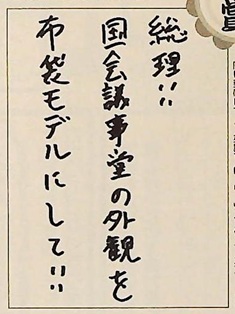 総理!!
国会議事堂の外観を
布袋モデルにして!!